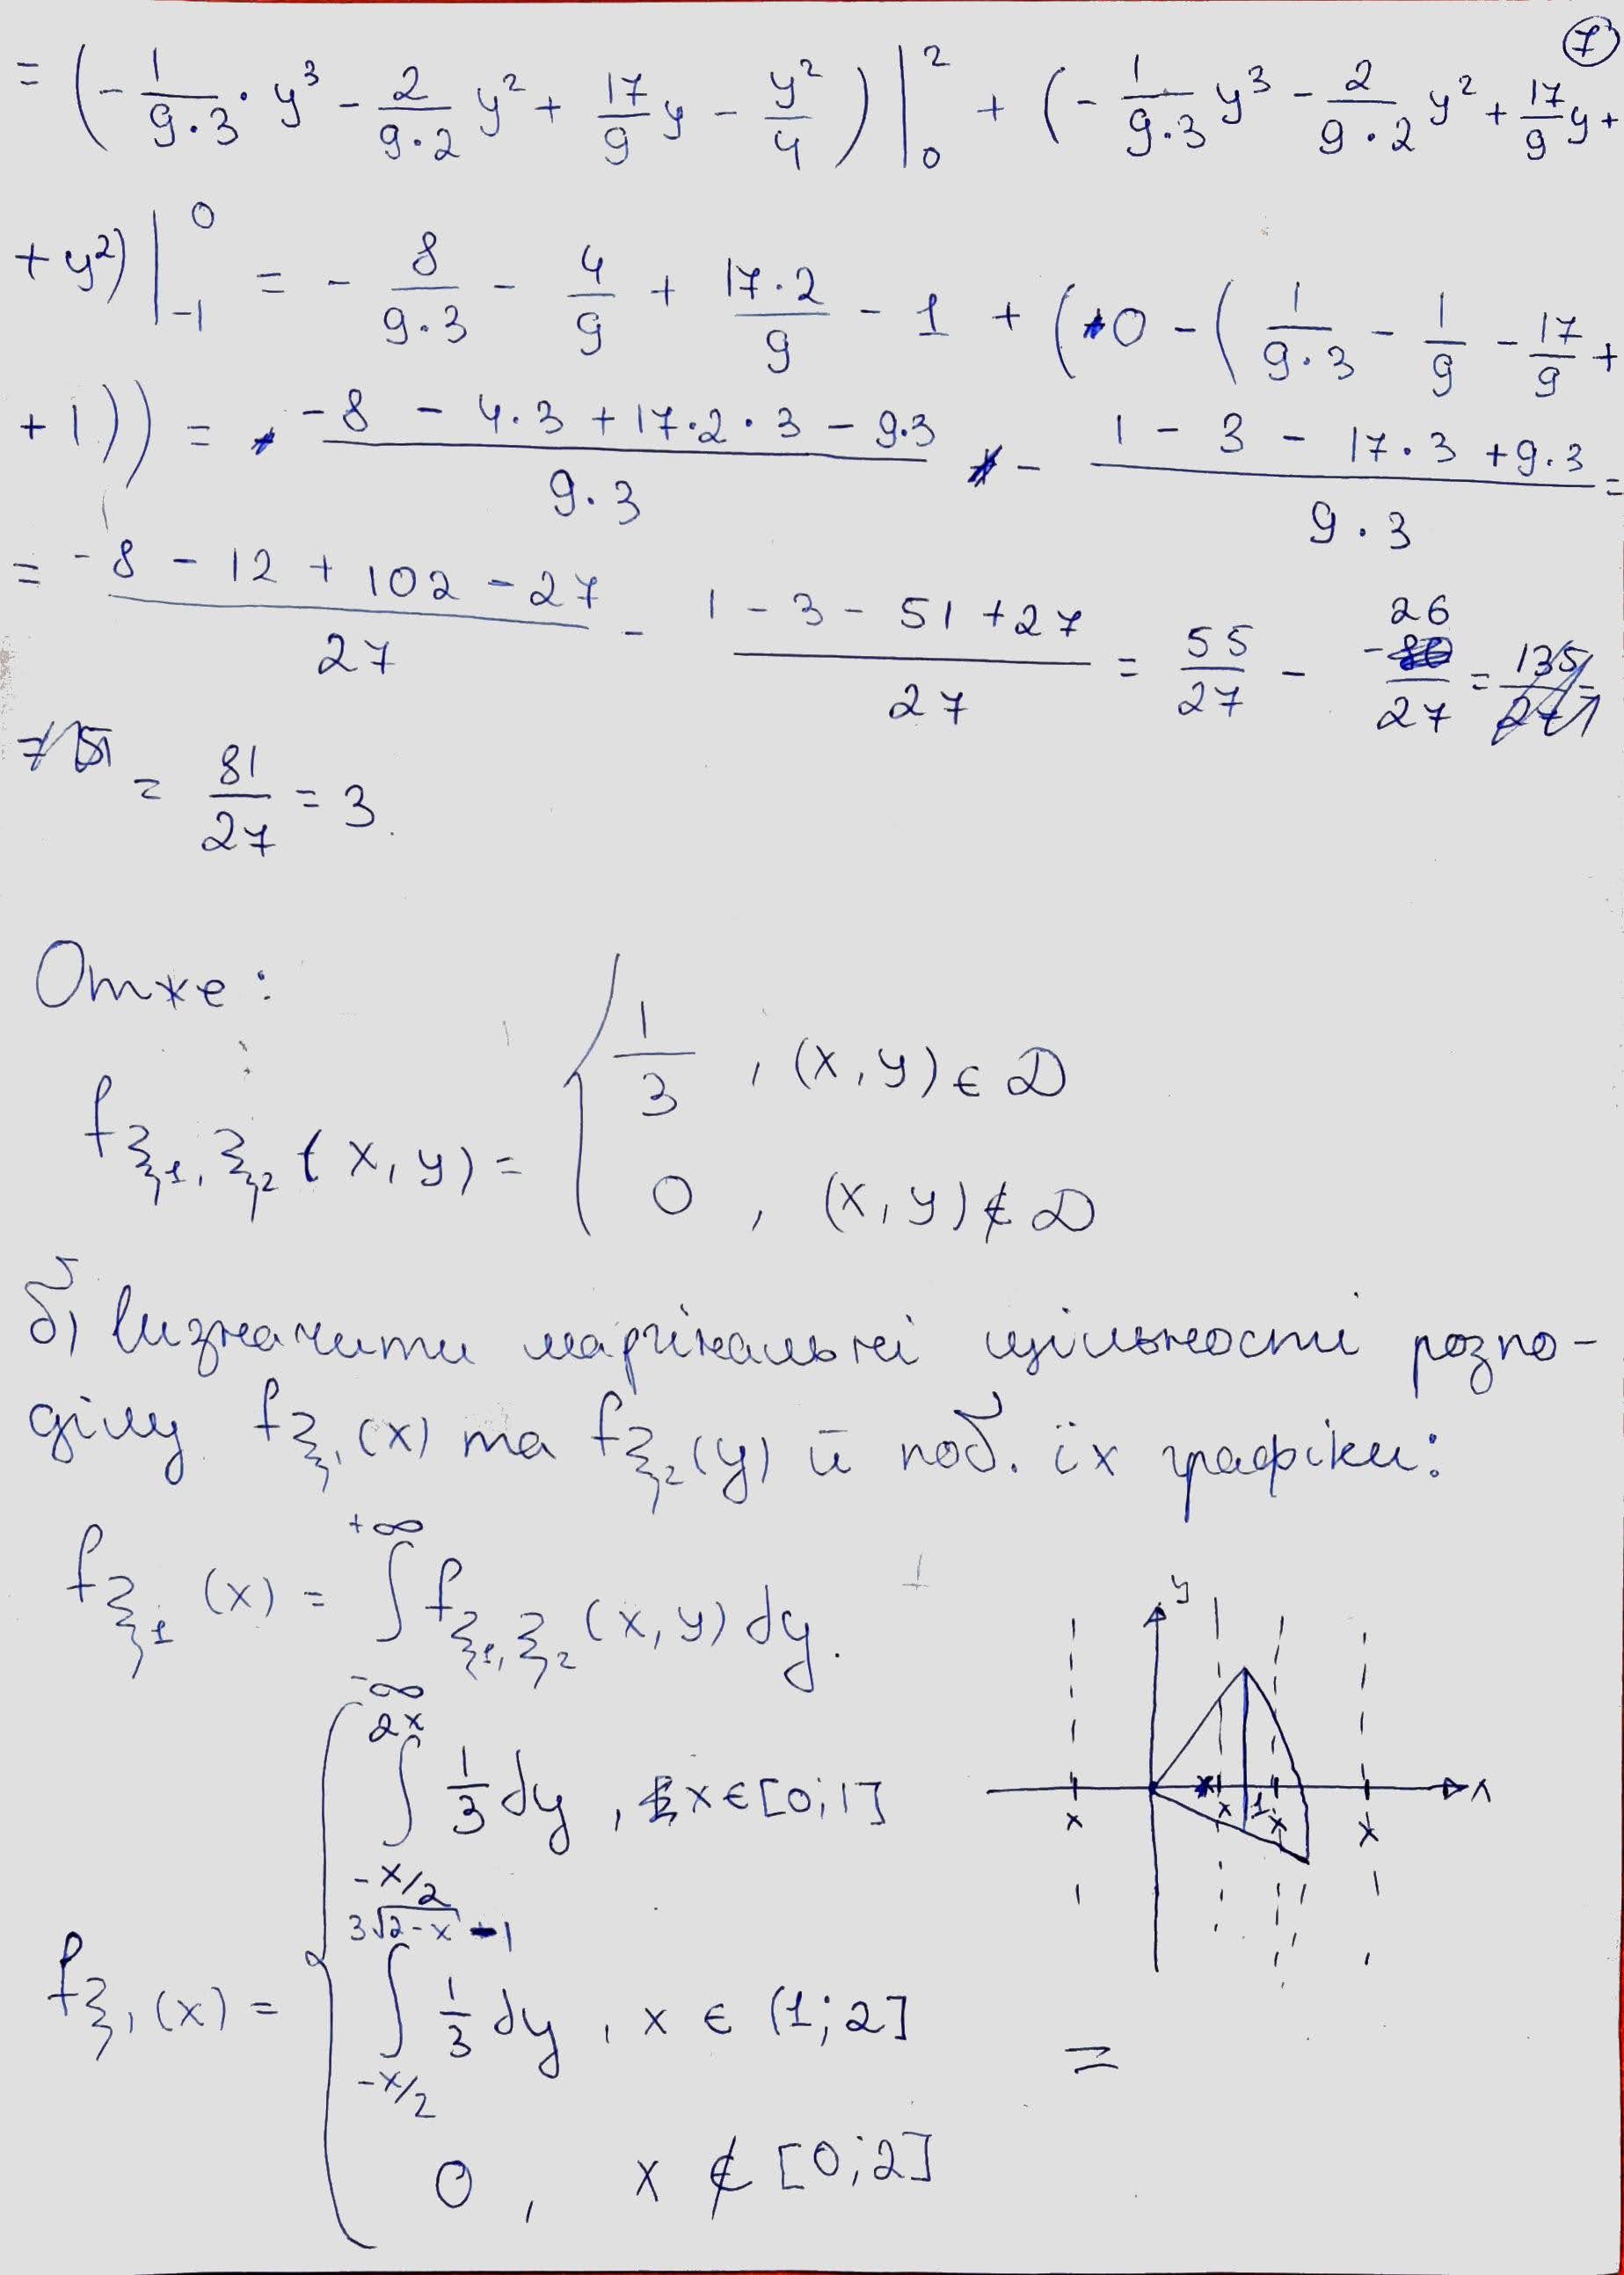 7
= (- 1/(9·3) · y³ - 2/(9·2) y² + 17/9 y - y²/4) |₀² + (- 1/(9·3) y³ - 2/(9·2) y² + 17/9 y +
+ y²) |₋₁⁰ = - 8/(9·3) - 4/9 + (17·2)/9 - 1 + (0 - (1/(9·3) - 1/9 - 17/9 +
+ 1)) = (-8 - 4·3 + 17·2·3 - 9·3)/(9·3) - (1 - 3 - 17·3 + 9·3)/(9·3) =
= (-8 - 12 + 102 - 27)/27 - (1 - 3 - 51 + 27)/27 = 55/27 - (-26)/27 = 135/27 =
= 81/27 = 3.
Отже:
f_{ξ₁,ξ₂}(x,y) = { 1/3 , (x,y) ∈ D
0 , (x,y) ∉ D
б) Визначити маргінальні щільності розпо-
ділу f_{ξ₁}(x) та f_{ξ₂}(y) й поб. їх графіки:
f_{ξ₁}(x) = ∫_{-∞}^{+∞} f_{ξ₁,ξ₂}(x,y) dy.
y
x
x x 1 x x
f_{ξ₁}(x) = { ∫_{-x/2}^{2x} 1/3 dy , x ∈ [0;1]
∫_{-x/2}^{3√(2-x) - 1} 1/3 dy , x ∈ (1;2] =
0 , x ∉ [0;2]